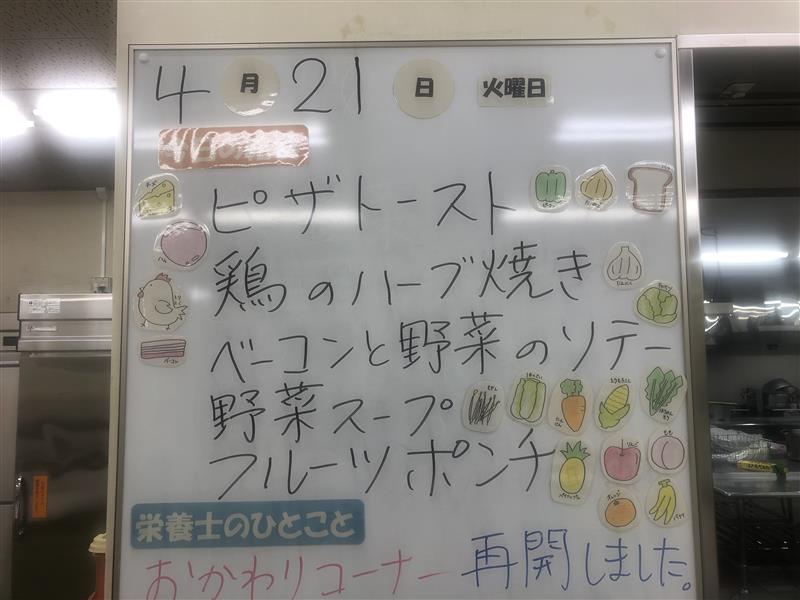 4月21日 火曜日
ピザトースト
鶏のハーブ焼き
ベーコンと野菜のソテー
野菜スープ
フルーツポンチ
栄養士のひとこと
おかわりコーナー再開しました。